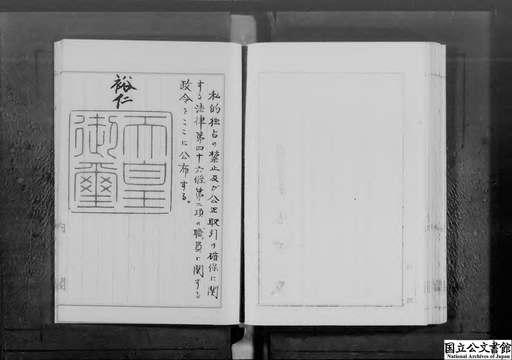 私的独占の禁止及び公正取引の確保に関
する法律第四十六条第二項の職員に関する
政令をここに公布する。
裕仁
天皇
御璽
内閣
国立公文書館
National Archives of Japan